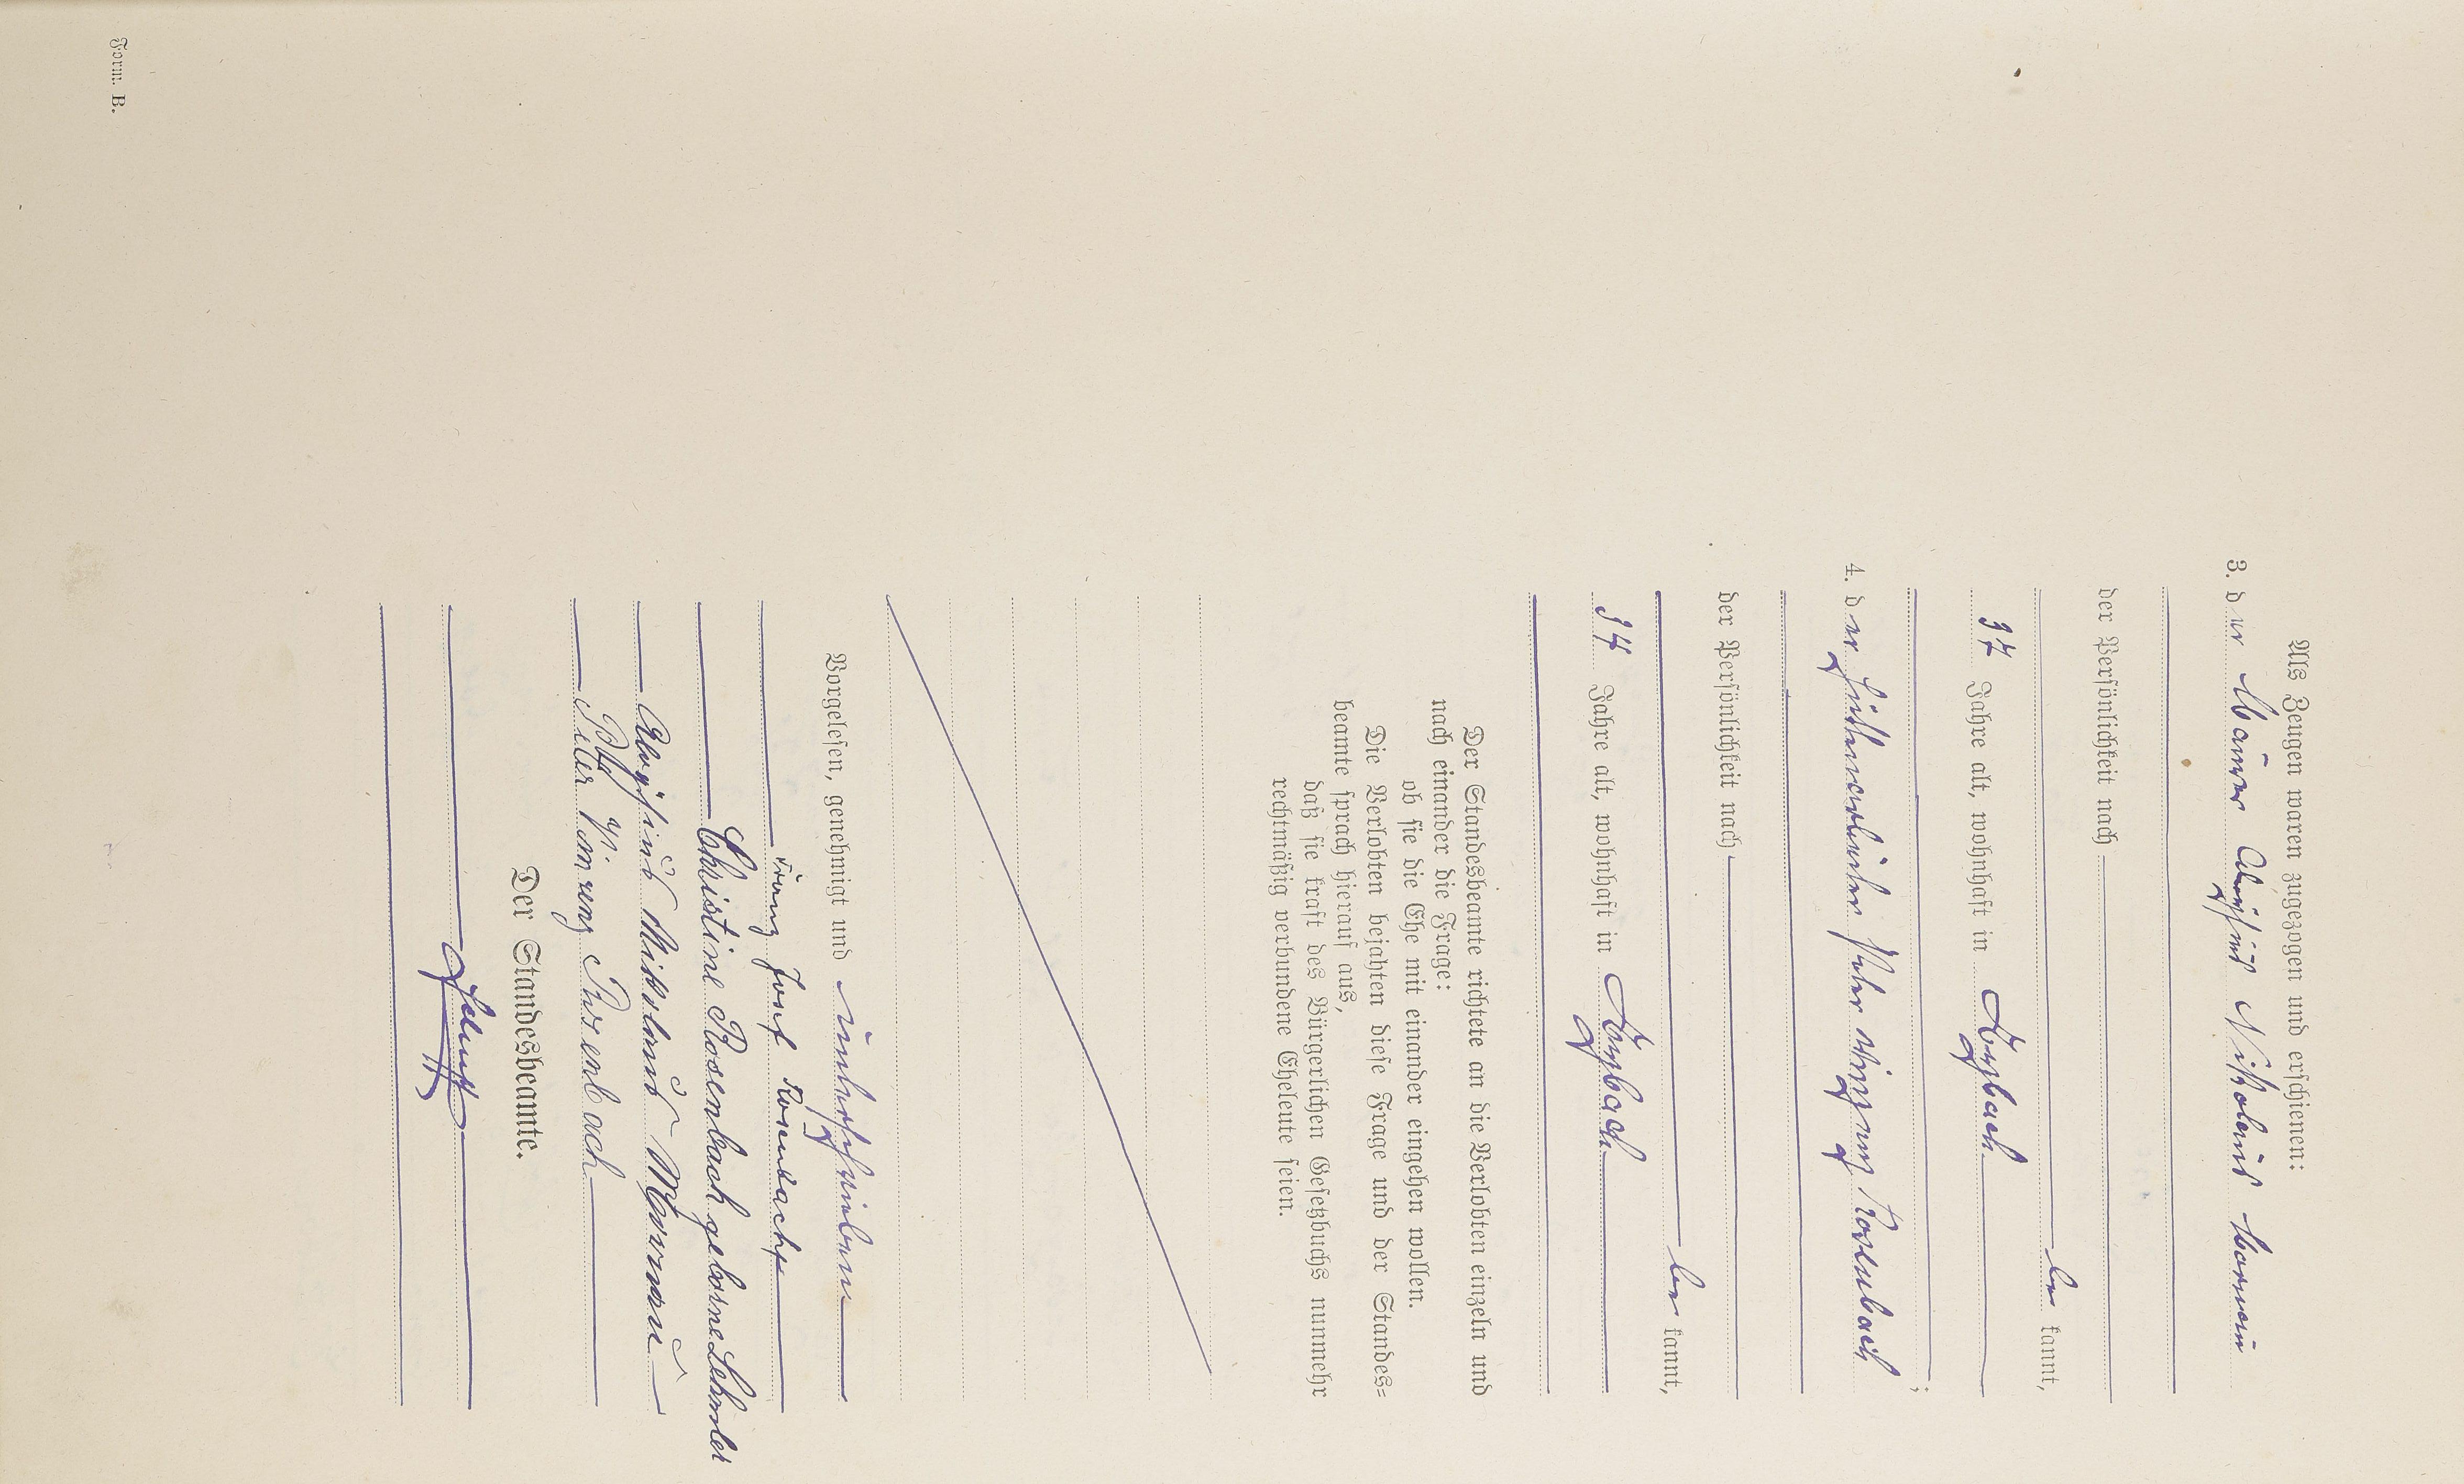 Als Zeugen waren zugezogen und erschienen:
3. der
der Persönlichkeit nach
be kannt,
37 Jahre alt, wohnhaft in
4. der Hüttenarbeiter Peter Rosenbach
;
der Persönlichkeit nach
be kannt,
34 Jahre alt, wohnhaft in
Der Standesbeamte richtete an die Verlobten einzeln und
nach einander die Frage:
ob sie die Ehe mit einander eingehen wollen.
Die Verlobten bejahten diese Frage und der Standes=
beamte sprach hierauf aus,
daß sie kraft des Bürgerlichen Gesetzbuchs nunmehr
rechtmäßig verbundene Eheleute seien.
Vorgelesen, genehmigt und unterschrieben
Franz Josef Rosenbach
Christine Rosenbach geborne
Peter Rosenbach
Der Standesbeamte.
Form. B.